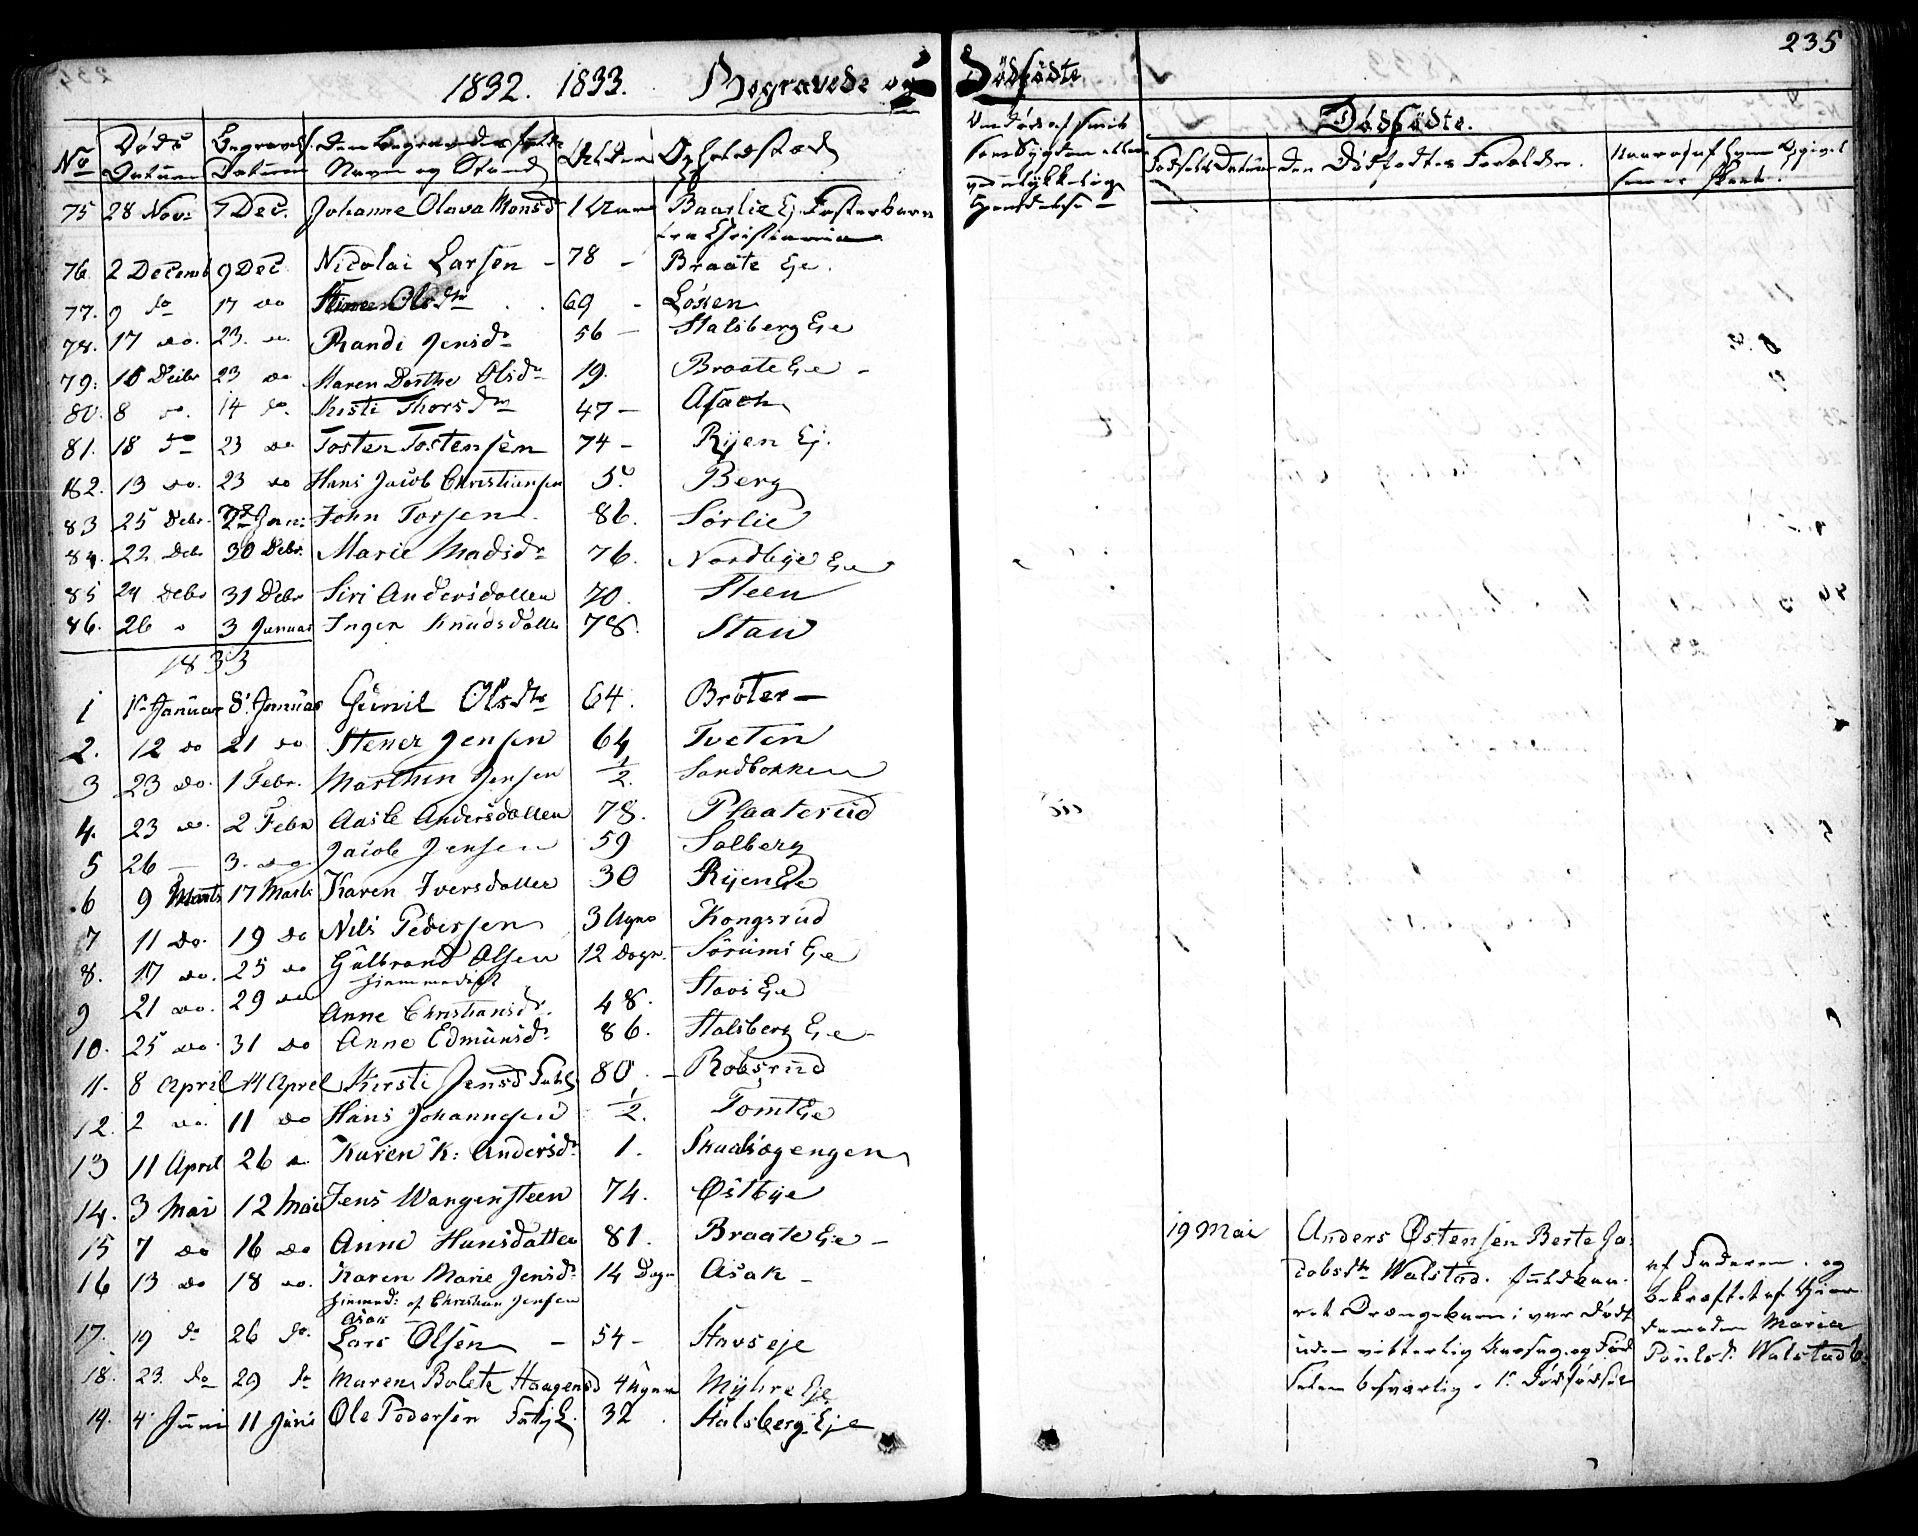 235
1832. 1833. Begravede og Dödfödte
No Döds Datum Begravels. Datum Den Begravedes fulde Navn og Stand Alder Opholdsted
Om Död af smitsom Sygdom eller ved ulykkelig Hændelse
Dödfödte.
Födsels Datum Den Dödfödtes Forældre.
75 28 Nov: 7 Dec. Johanne Olava Monsd 1 Aar Baarlie Ej. Fosterbarn
fra Christiania
76. 2 Decemb 9 Dec Nicolai Larsen - 78 - Braate Eje.
77. 9 do 17 do Olsdtr 69 - Lössen
78. 17 do. 23. do. Randi Jensdr 56 - Stalsberg Eje
79. 16 Decbr 23 do Maren Dorthe Olsdr 19. Braate Eje -
80. 8 do. 14 do. Kisti Thorsdtr 47 - Asach
81. 18 do 23 do Tosten Tostensen 74 - Rijen Ej.
82. 13 do. 23 do Hans Jacob Christiansen 5. Berg
83 25 Debr. 2 Jan: John Torsen 86. Sörlie
84. 22 Debr 30 Debr. Marie Madsdr 76. Nordbye Eje
85 24 Debr 31 Debr Siri Andersdatter 70. Steen
86. 26 " 3 Januar Inger Knudsdatter 78. Stav
1833
1 1. Januar 8. Januar Gunil Olsdtr 64. Bröter -
2. 12 do 21 do Stener Jensen 64 Tveten
3 23 do. 1 Febr. Marthin Jensen 1/2. Sandbakken
4. 23 do. 2 Febr Aasle Andersdatter 78. Plaaterud
5 26 - 3. do Jacob Jensen 59 Solberg
6 9 Marts 17 Marts Karen Iversdatter 30 Rijen Eje
7 11 do. 19 do Nils Pedersen 3 Uger Kongsrud
8. 17 do. 25 do Gulbrand Olsen 12 Dage. Sörums Eje
hjemmedöbt
9 21 do. 29 do Anne Christiansdr. 48. Stavs Eje
10. 25 do 31 do Anne Edmundsdr 86. Stalsberg Eje -
11. 8 April 14 April Kirsti Jensd 80. - Robsrud
12. 2 do. 11 do Hans Johannesen 1/2. Tomt Eje
13 11 April 26 do Karen K: Andersdr 1. Skadsogengen
14. 3 Mai 12 Mai Jens Wangensteen 74. Östbye
15 7 do 16 do Anne Hansdatter 81. Braate Eje -
16 13 do 18 do. Karen Marie Jensdr 14 Dage Asak -
hjemmed: af Christian Jensen
Asak
17. 19 do 26 do. Lars Olsen - 54 - Stavs eje
18. 23. do 29 do Maren Bolete Haagensd 4 Uger Myhre Eje
19. 4. Juni 11 Juni Ole Pedersen 32. Stalsberg Eje
19 Mai
Anders Östensen Berte Ja-
cobsdtr Walstad. fuldbaa-
ret Drængebarn; var dödt
uden vitterlig Aarsag. og Föd
selen besværlig. 1. Dödfödsel
af Faderen. og
bekræftet af Gjor-
demoder Maria
Poulsd. Walstad